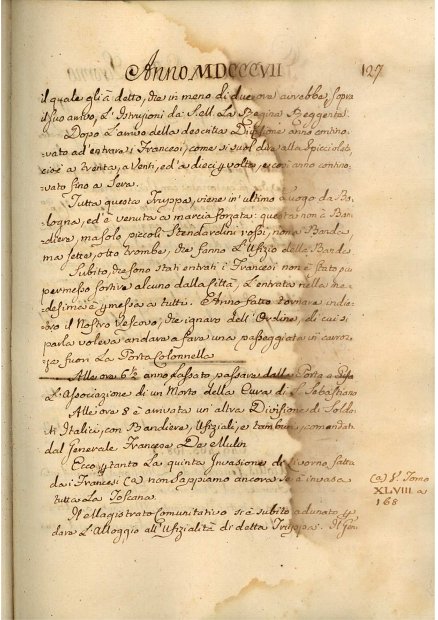 Anno MDCCCVII
127
il quale gli à detto, che in meno di due ore avrebbe, sopra
il suo arrivo, l'Istruzioni da S. M. La Regina Reggente.
Dopo l'arrivo della descritta Divisione anno contino-
vato ad entrare i Francesi, come si suol dire alla spicciolata
cioè a trenta, a venti, ed a dieci p volta, e così anno contino-
vato fino a sera.
Tutta questa Truppa, viene in ultimo luogo da Bo-
logna, ed è venuta a marcia forzata: questa non à Ban-
diera, ma solo piccoli Stendardini rossi, non à Banda,
ma sette, o otto trombe, che fanno L'Ufizio della Banda
Subito, che sono stati entrati i Francesi non è stato più
permesso sortire alcuno dalla Città, L'entrata nella me-
desima è permessa a tutti. Anno fatto tornare indie-
tro il Nostro Vescovo, che ignaro dell'Ordine, di cui si
parla voleva andare a fare una passeggiata in carroz-
za fuori La Porta Colonnella
Alle ore 6½ anno lasciato passare dalla Porta a Pisa
L'Associazione di un Morto della Cura di S. Sebastiano
Alle ore 8 è arrivata un altra Divisione di Solda-
ti Italici, con Bandiera, Ufiziali, e tamburi, comandati
dal Generale Francese De Mulin
Ecco p tanto La quinta Invasione di Livorno fatta
da i Francesi (a) non sappiamo ancora se è invasa
tutta La Toscana.
(a) V. Tomo
XLVIII a
168
Il Magistrato Comunitativo si è subito adunato p
dare L'Alloggio all'Ufizialità di detta Truppa. Il Gen.